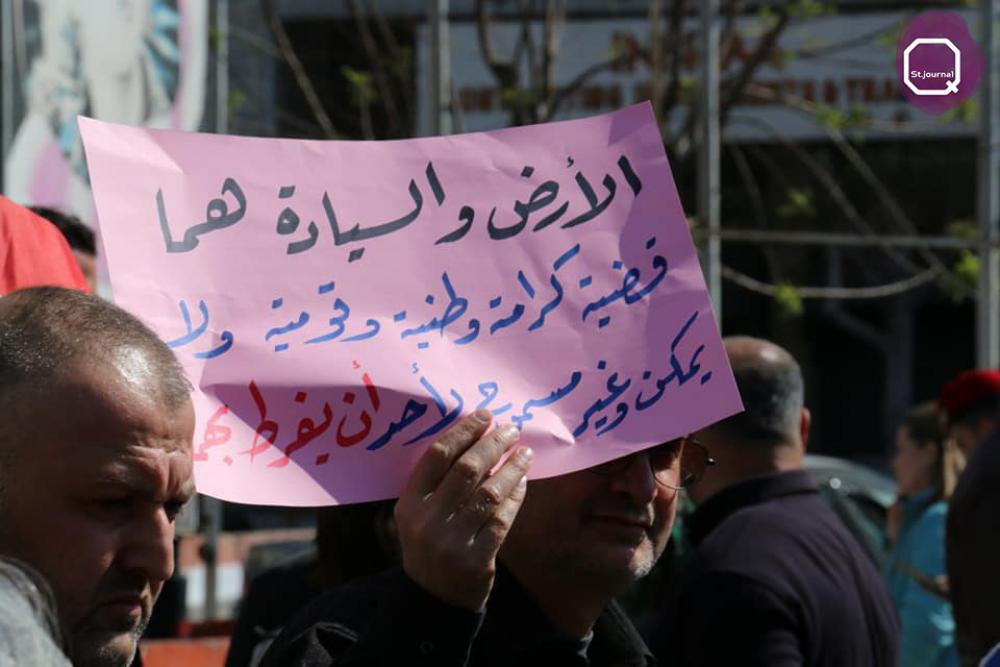 الأرض والسيادة هما
قضية كرامة وطنية وقومية ولا
يمكن وغير مسموح لأحد أن يفرط بهما
St.journal